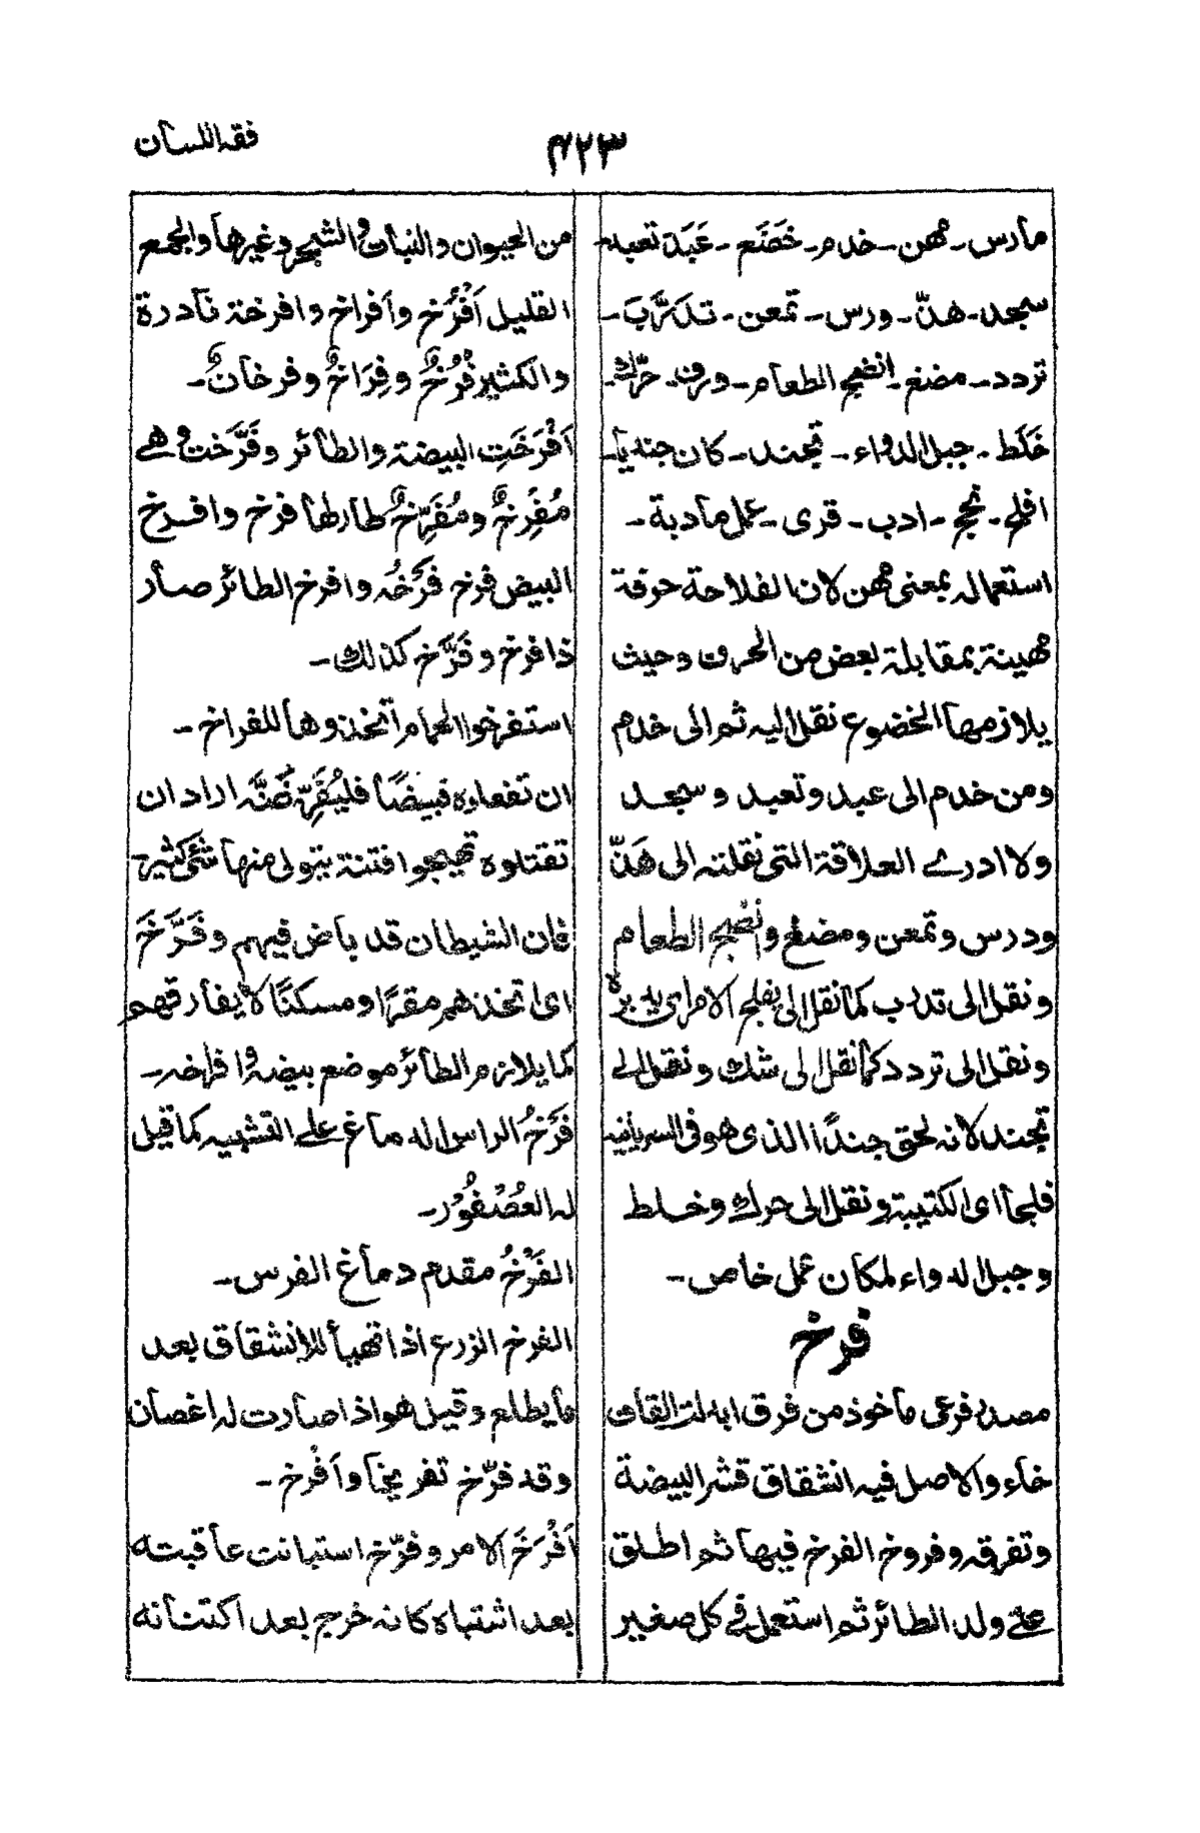 فقہ اللسان
۴۲۳
مارس۔ مهن۔ خدم۔ خَضَع۔ عَبَدَ تعبد۔
سجد۔ هذّ۔ ورس۔ تمعن۔ تدرَّبَ۔
تردد۔ مضغ۔ انضج الطعام۔ ورق۔ حرّك۔
خَلَط۔ جبل الدواء۔ تجند۔ كان جنديا۔
افلح۔ نجح۔ ادب۔ قرى۔ عمل مادبة۔
استعماله بمعنى مهن لان الفلاحة حرفة
مهينة بمقابلة بعض من الحرف وحيث
يلازمها الخضوع نقل اليه ثم الى خدم
ومن خدم الى عبد وتعبد وسجد
ولا ادرے العلاقة التى نقلته الى هَذّ
ودرس وتمعن ومضغ وانضج الطعام
ونقل الى تدرب كما نقل الى يفلح الامر اى يدبره
ونقل الى تردد كما نقل الى شك ونقل الے
تجند لانه لحق جندًا الذى هو فى السريانية
فلجا اى الكتيبة ونقل الى حرك وخلط
وجبل الدواء لمكان عمل خاص۔
فرخ
مصدر فرعى ماخوذ من فرق ابدلت القاف
خاء والاصل فيه انشقاق قشر البيضة
وتفرقه وفروخ الفرخ فيها ثم اطلق
علے ولد الطائر ثم استعمل فے كل صغير
من الحيوان والنبات والشجر وغيرها والجمع
القليل اَفْرُخ واَفراخ وافرخة نادرة
والكثير فُرُخٌ وفِرَاخٌ وفرخانٌ۔
اَفْرَخَتِ البيضة والطائر وفَرَّخَتْ وهے
مُفرِخٌ ومُفَرِّخٌ طارلها فرخ وافرخ
البيض خرج فَرْخُه وافرخ الطائر صار
ذا فرخ وفَرَّخ كذلك۔
استفرخوا الحمام اتخذوها للفراخ۔
ان تفعلوه فبيضًا فليُفَرِّخَنَّه اراد ان
تقتلوه تهيجوا فتنة يتولى منها شئ كثير
فان الشيطان قد باض فيهم وفَرَّخَ
اى اتخذهم مقرًا ومسكنًا لا يفارقهم
كما يلازم الطائر موضع بيضه وافراخه۔
فَرْخُ الراس الدماغ علے التشبيه كما قيل
له العُصْفُوْر۔
الفَرْخُ مقدم دماغ الفرس۔
الفرخ الزرع اذا تهيأ للانشقاق بعد
ما يطلع وقيل هو اذا صارت له اغصان
وقد فرّخ تفريخا واَفْرخ۔
اَفْرَخَ الامر وفرّخ استبانت عاقبته
بعد اشتباه كانه خرج بعد اكتنانه